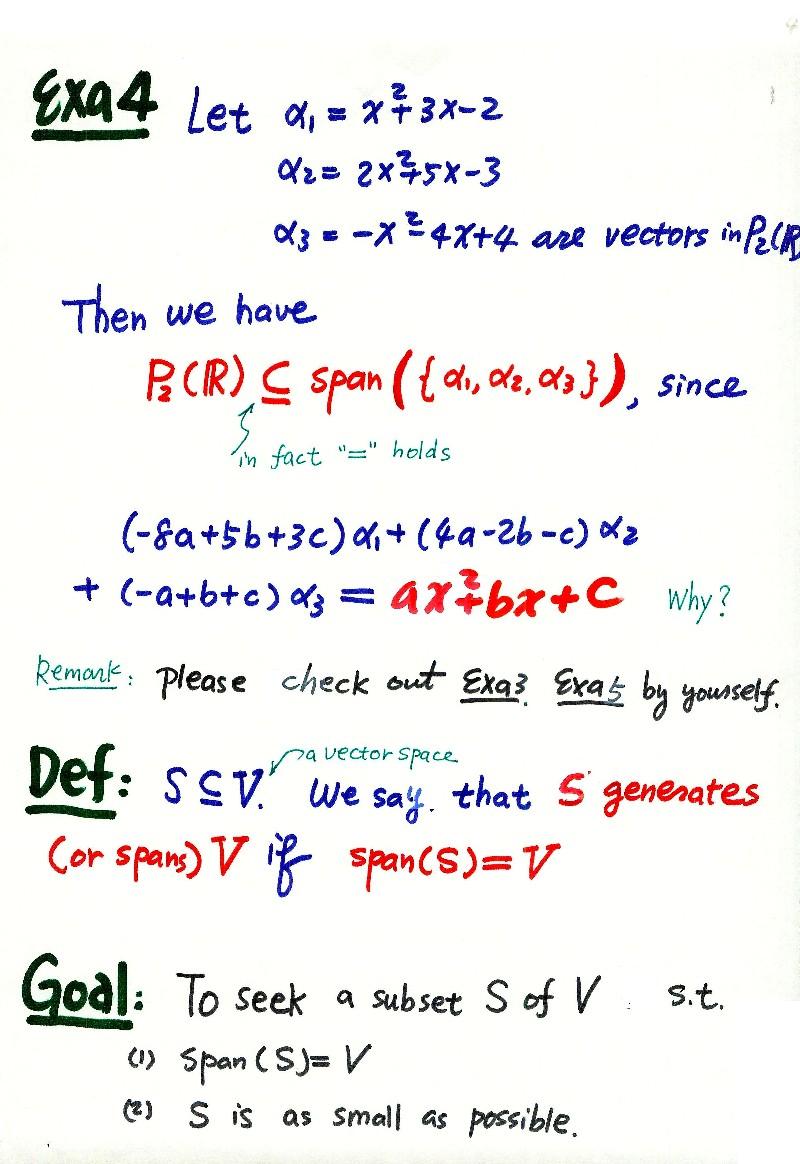 Exa 4 Let α₁ = x²+3x-2
α₂ = 2x²+5x-3
α₃ = -x²-4x+4 are vectors in P₂(ℝ)
Then we have
P₂(ℝ) ⊆ span({α₁, α₂, α₃}), since
in fact "=" holds
(-8a+5b+3c)α₁+(4a-2b-c)α₂
+ (-a+b+c)α₃ = ax²+bx+c Why?
Remark: Please check out Exa3. Exa5 by yourself.
a vector space
Def: S⊆V. We say that S generates
(or spans) V if span(S)=V
Goal: To seek a subset S of V s.t.
(1) Span(S)=V
(2) S is as small as possible.